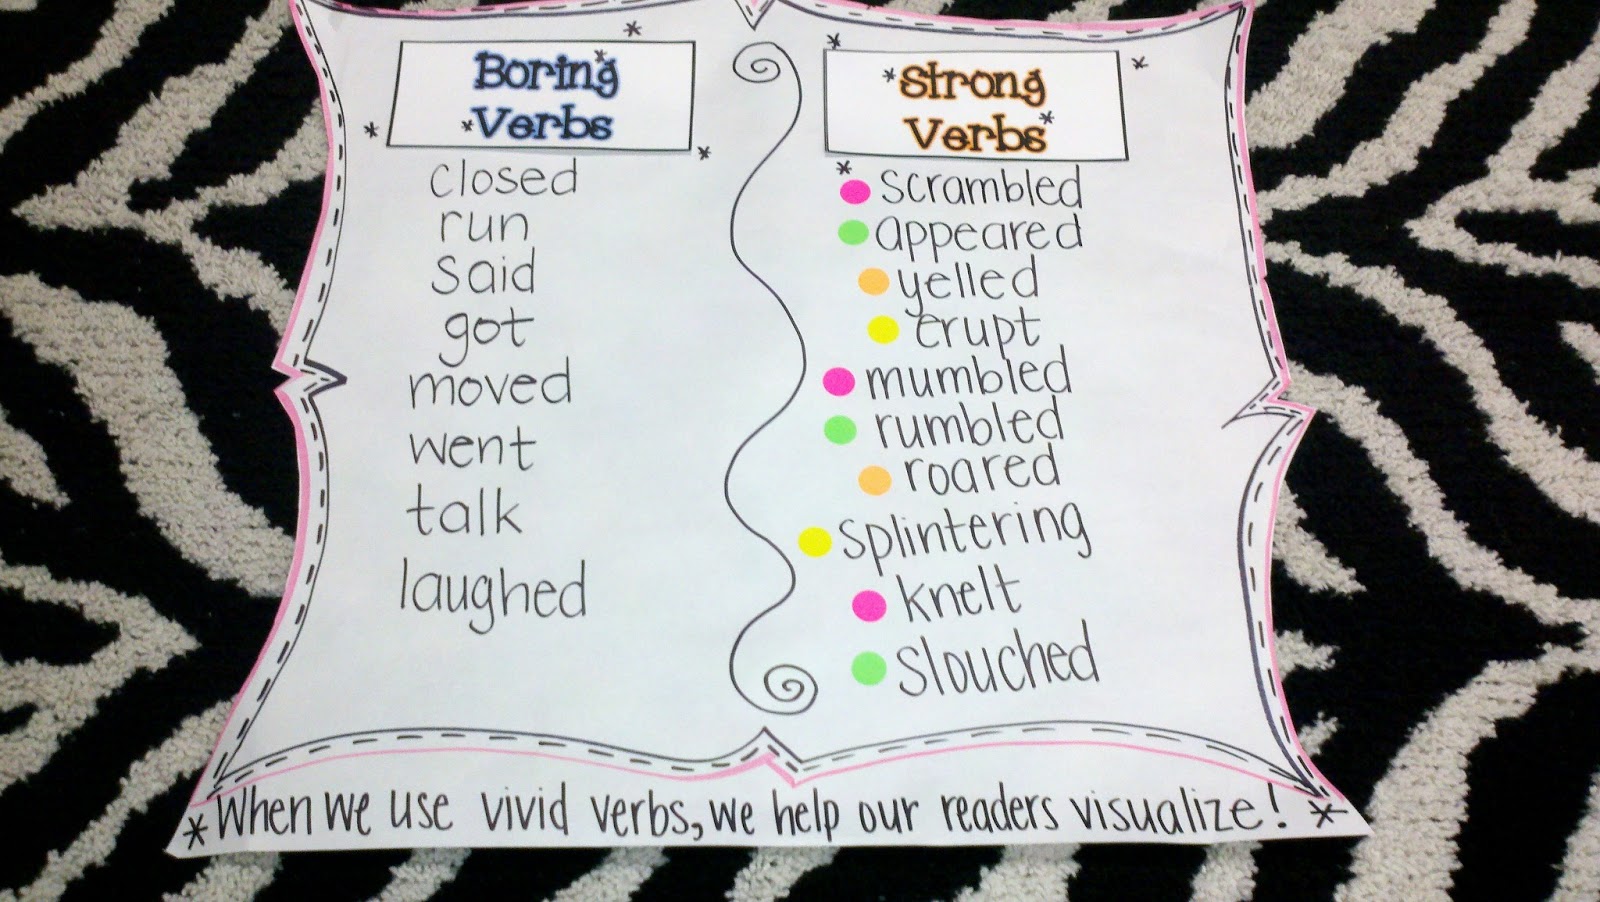 Boring
Verbs
closed
run
said
got
moved
went
talk
laughed
Strong
Verbs
scrambled
appeared
yelled
erupt
mumbled
rumbled
roared
splintering
knelt
slouched
*When we use vivid verbs, we help our readers visualize! *